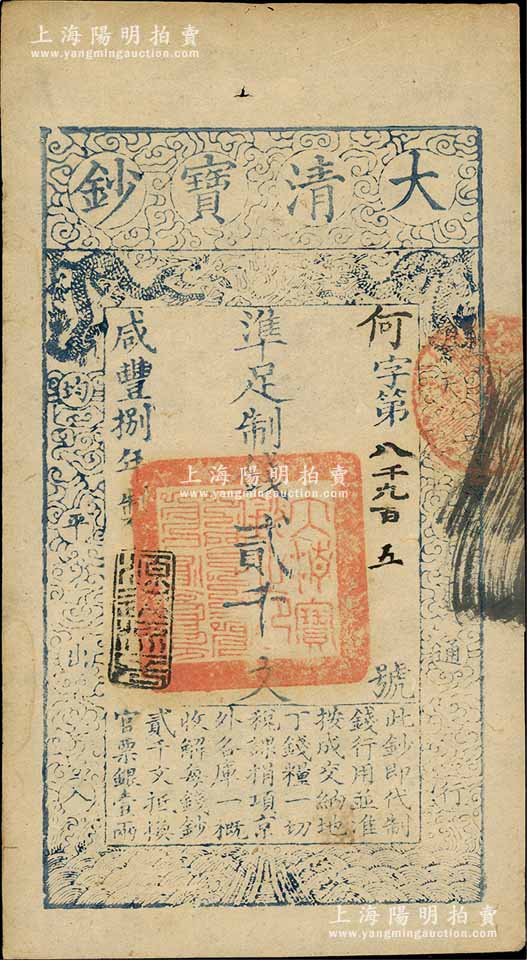 上海陽明拍賣
www.yangmingauction.com
大清寶鈔
何字第八千九百五號
準足制錢貳千文
咸豐捌年製
均平出入
通行
此鈔即代制
錢行用並准
按成交納地
丁錢糧一切
稅課捐項京
外各庫一概
收解每錢鈔
貳千文抵換
官票銀壹兩
上海陽明拍賣
www.yangmingauction.com
上海陽明拍賣
www.yangmingauction.com